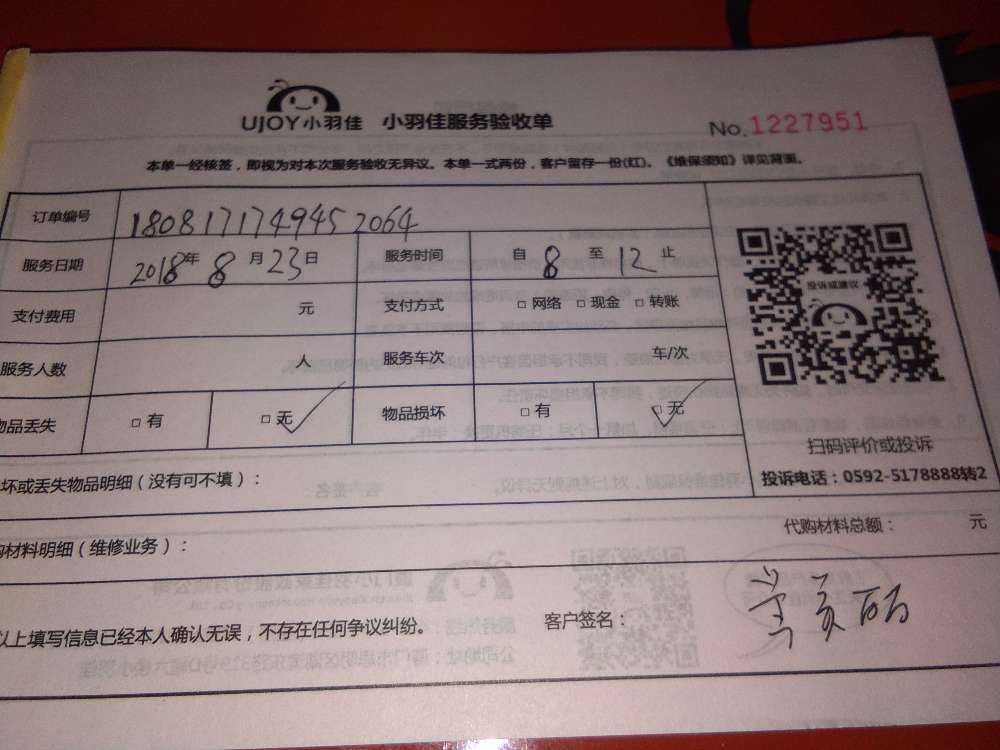 UJOY小羽佳 小羽佳服务验收单 No.1227951
本单一经核签，即视为对本次服务验收无异议。本单一式两份，客户留存一份(红)。《维保须知》详见背面。
订单编号 180817174945 2064
服务日期 2018年8月23日 服务时间 自8至12止
支付费用 元 支付方式 □网络 □现金 □转账
服务人数 人 服务车次 车/次
物品丢失 □有 □无 物品损坏 □有 □无
投诉或建议
扫码评价或投诉
投诉电话：0592-5178888转2
坏或丢失物品明细（没有可不填）：
购材料明细（维修业务）： 代购材料总额： 元
以上填写信息已经本人确认无误，不存在任何争议纠纷。 客户签名：